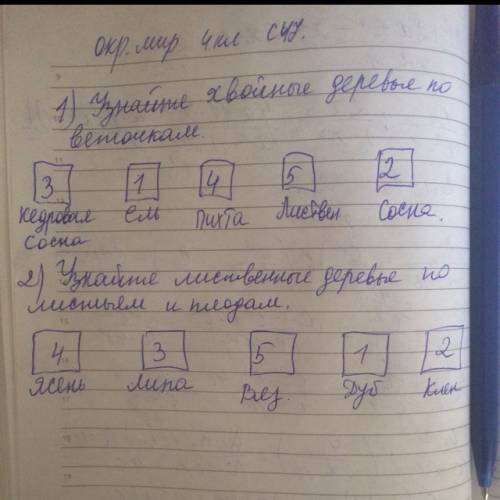 окр. мир 4кл. С47.
1) Узнайте хвойные деревья по
веточкам.
3 1 4 5 2
Кедровая Ель Пихта Листвен Сосна.
Сосна
2) Узнайте лиственные деревья по
листьям и плодам.
4 3 5 1 2
Ясень Липа Вяз. Дуб Клен